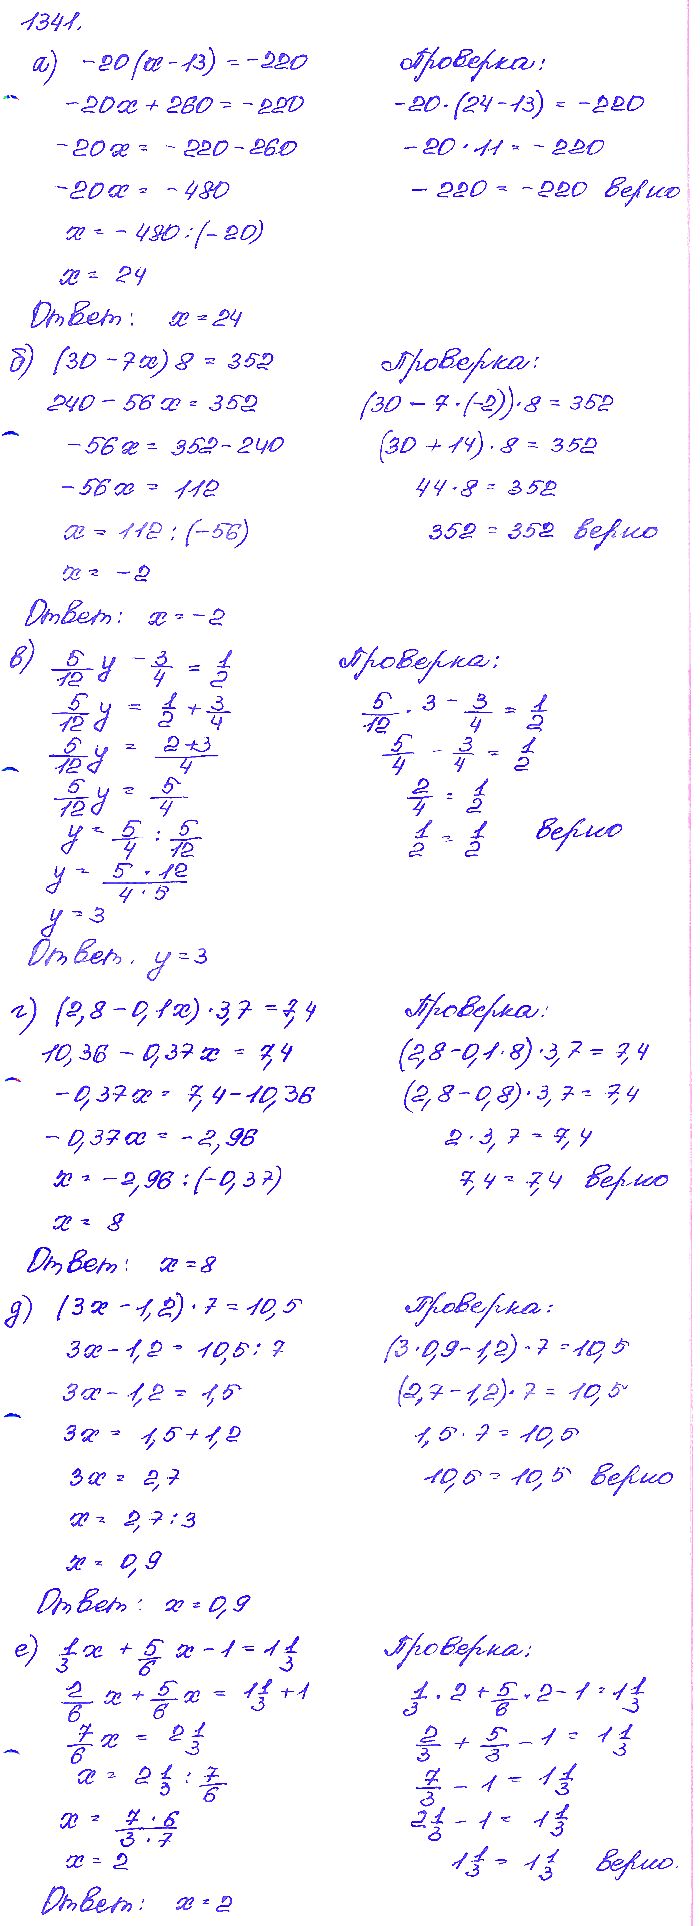 1341.
а) -20(x-13) = -220 Проверка:
-20x + 260 = -220 -20·(24-13) = -220
-20x = -220-260 -20·11 = -220
-20x = -480 -220 = -220 верно
x = -480:(-20)
x = 24
Ответ: x = 24
б) (30-7x)8 = 352 Проверка:
240-56x = 352 (30-7·(-2))·8 = 352
-56x = 352-240 (30+14)·8 = 352
-56x = 112 44·8 = 352
x = 112:(-56) 352 = 352 верно
x = -2
Ответ: x = -2
в) 5/12 y - 3/4 = 1/2 Проверка:
5/12 y = 1/2 + 3/4 5/12 · 3 - 3/4 = 1/2
5/12 y = (2+3)/4 5/4 - 3/4 = 1/2
5/12 y = 5/4 2/4 = 1/2
y = 5/4 : 5/12 1/2 = 1/2 верно
y = (5·12)/(4·5)
y = 3
Ответ. y = 3
г) (2,8-0,1x)·3,7 = 7,4 Проверка:
10,36-0,37x = 7,4 (2,8-0,1·8)·3,7 = 7,4
-0,37x = 7,4-10,36 (2,8-0,8)·3,7 = 7,4
-0,37x = -2,96 2·3,7 = 7,4
x = -2,96:(-0,37) 7,4 = 7,4 верно
x = 8
Ответ: x = 8
д) (3x-1,2)·7 = 10,5 Проверка:
3x-1,2 = 10,5:7 (3·0,9-1,2)·7 = 10,5
3x-1,2 = 1,5 (2,7-1,2)·7 = 10,5
3x = 1,5+1,2 1,5·7 = 10,5
3x = 2,7 10,5 = 10,5 верно
x = 2,7:3
x = 0,9
Ответ: x = 0,9
е) 1/3 x + 5/6 x - 1 = 1 1/3 Проверка:
2/6 x + 5/6 x = 1 1/3 + 1 1/3 · 2 + 5/6 · 2 - 1 = 1 1/3
7/6 x = 2 1/3 2/3 + 5/3 - 1 = 1 1/3
x = 2 1/3 : 7/6 7/3 - 1 = 1 1/3
x = (7·6)/(3·7) 2 1/3 - 1 = 1 1/3
x = 2 1 1/3 = 1 1/3 верно.
Ответ: x = 2